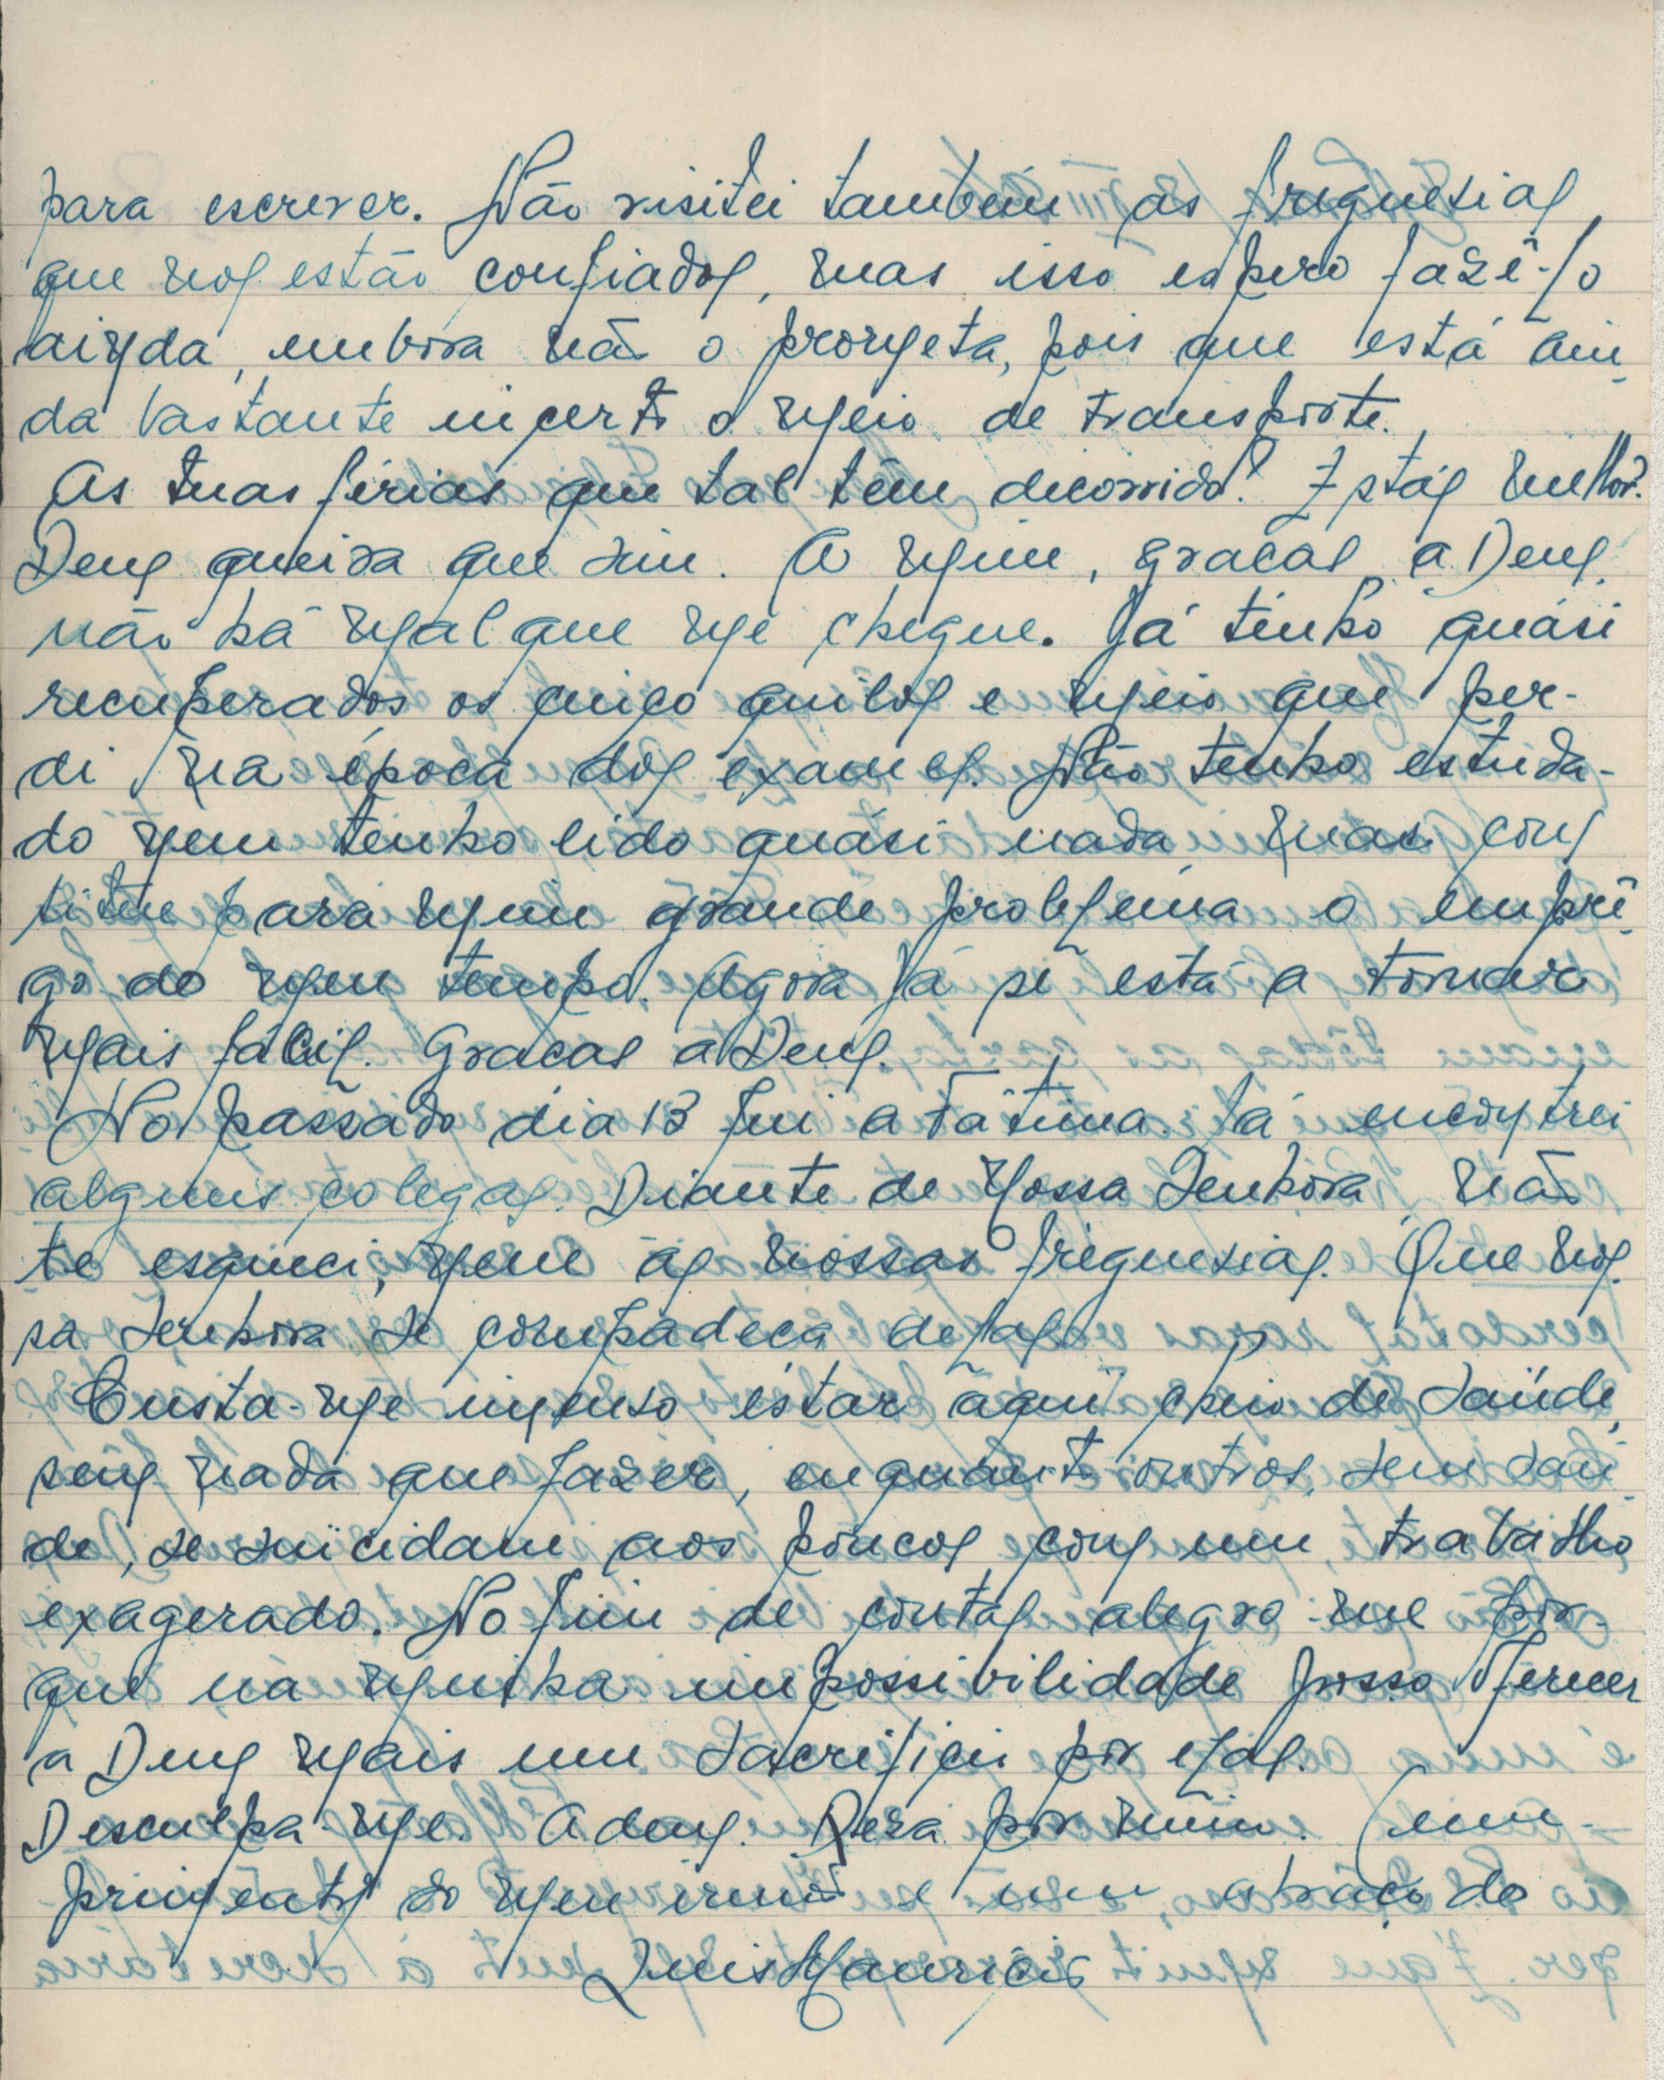 para escrever. Não visitei também as freguesias
que nos estão confiados, mas isso espero fazê-lo
ainda, embora não o prometa, pois que está ain
da bastante incerto o meio de transporte.
As tuas férias que tal têm decorrido? Estás melhor?
Deus queira que sim. A mim, graças a Deus,
não há mal que me chegue. Já tenho quási
recuperados os cinco quilos e meio que per-
di na época dos exames. Não tenho estuda-
do nem tenho lido quási nada, mas cons
titue para mim grande problema o emprê-
go do meu tempo. Agora já se está a tornar
mais fácil. Graças a Deus.
No passado dia 13 fui a Fátima. Lá encontrei
alguns colegas. Diante de Nossa Senhora, não
te esqueci, nem às nossas freguesias. Que Nos
sa Senhora se compadeça delas.
Custa-me imenso estar aqui cheio de saúde,
sem nada que fazer, enquanto outros, sem saú
de, se suicidam aos poucos com um trabalho
exagerado. No fim de contas alegro-me por-
que na minha impossibilidade posso oferecer
a Deus mais um sacrifício por elas.
Desculpa-me. Adeus. Reza por mim. Cum-
primentos do meu irmão e um abraço do
Luis Maurício